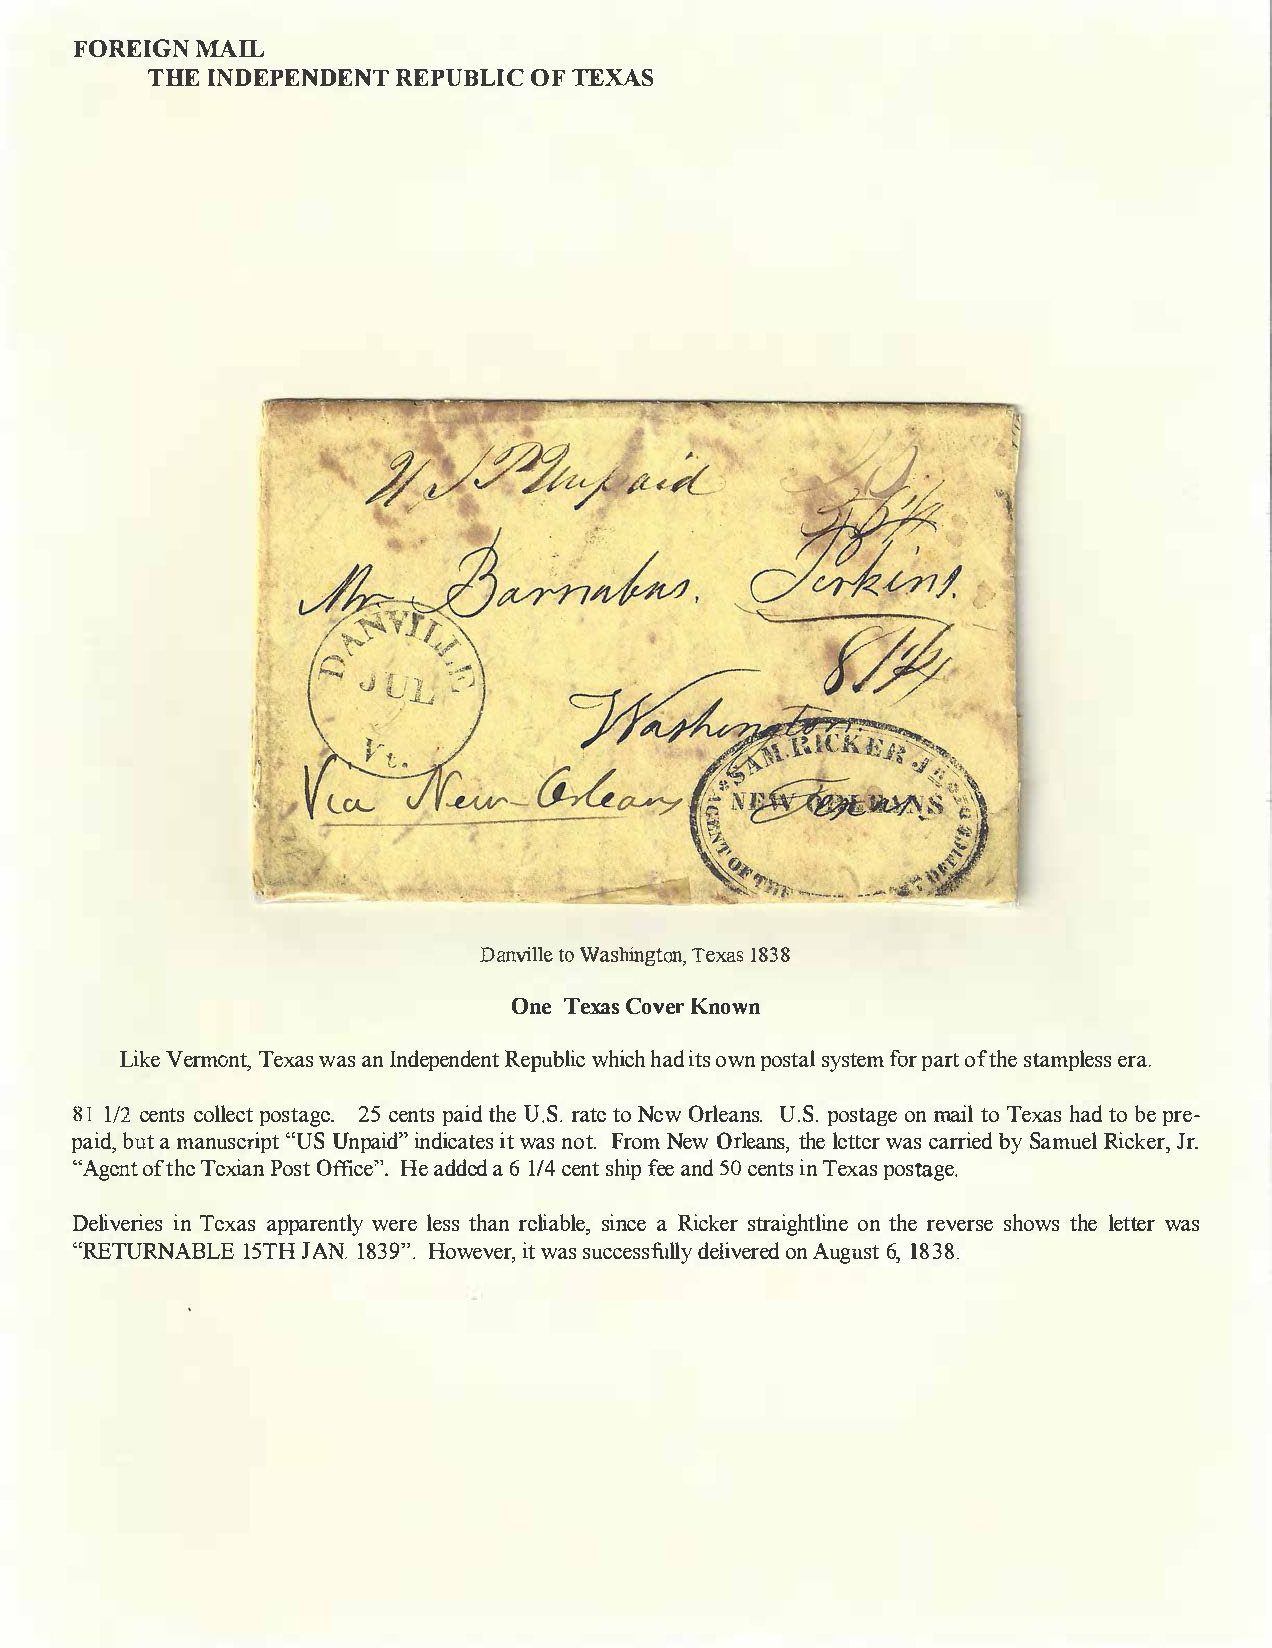 FOREIGN MAIL
THE INDEPENDENT REPUBLIC OF TEXAS
U S P Unpaid
56 1/4
Mr Barnabus. Perkins.
DANVILLE
JUL
Vt.
81 1/4
Washington
Texas
Via New-Orleans
SAM. RICKER JR
NEW ORLEANS
AGENT OF THE
OFFICE
Danville to Washington, Texas 1838
One Texas Cover Known
Like Vermont, Texas was an Independent Republic which had its own postal system for part of the stampless era.
81 1/2 cents collect postage. 25 cents paid the U.S. rate to New Orleans. U.S. postage on mail to Texas had to be pre-
paid, but a manuscript “US Unpaid” indicates it was not. From New Orleans, the letter was carried by Samuel Ricker, Jr.
“Agent of the Texian Post Office”. He added a 6 1/4 cent ship fee and 50 cents in Texas postage.
Deliveries in Texas apparently were less than reliable, since a Ricker straightline on the reverse shows the letter was
“RETURNABLE 15TH JAN. 1839”. However, it was successfully delivered on August 6, 1838.